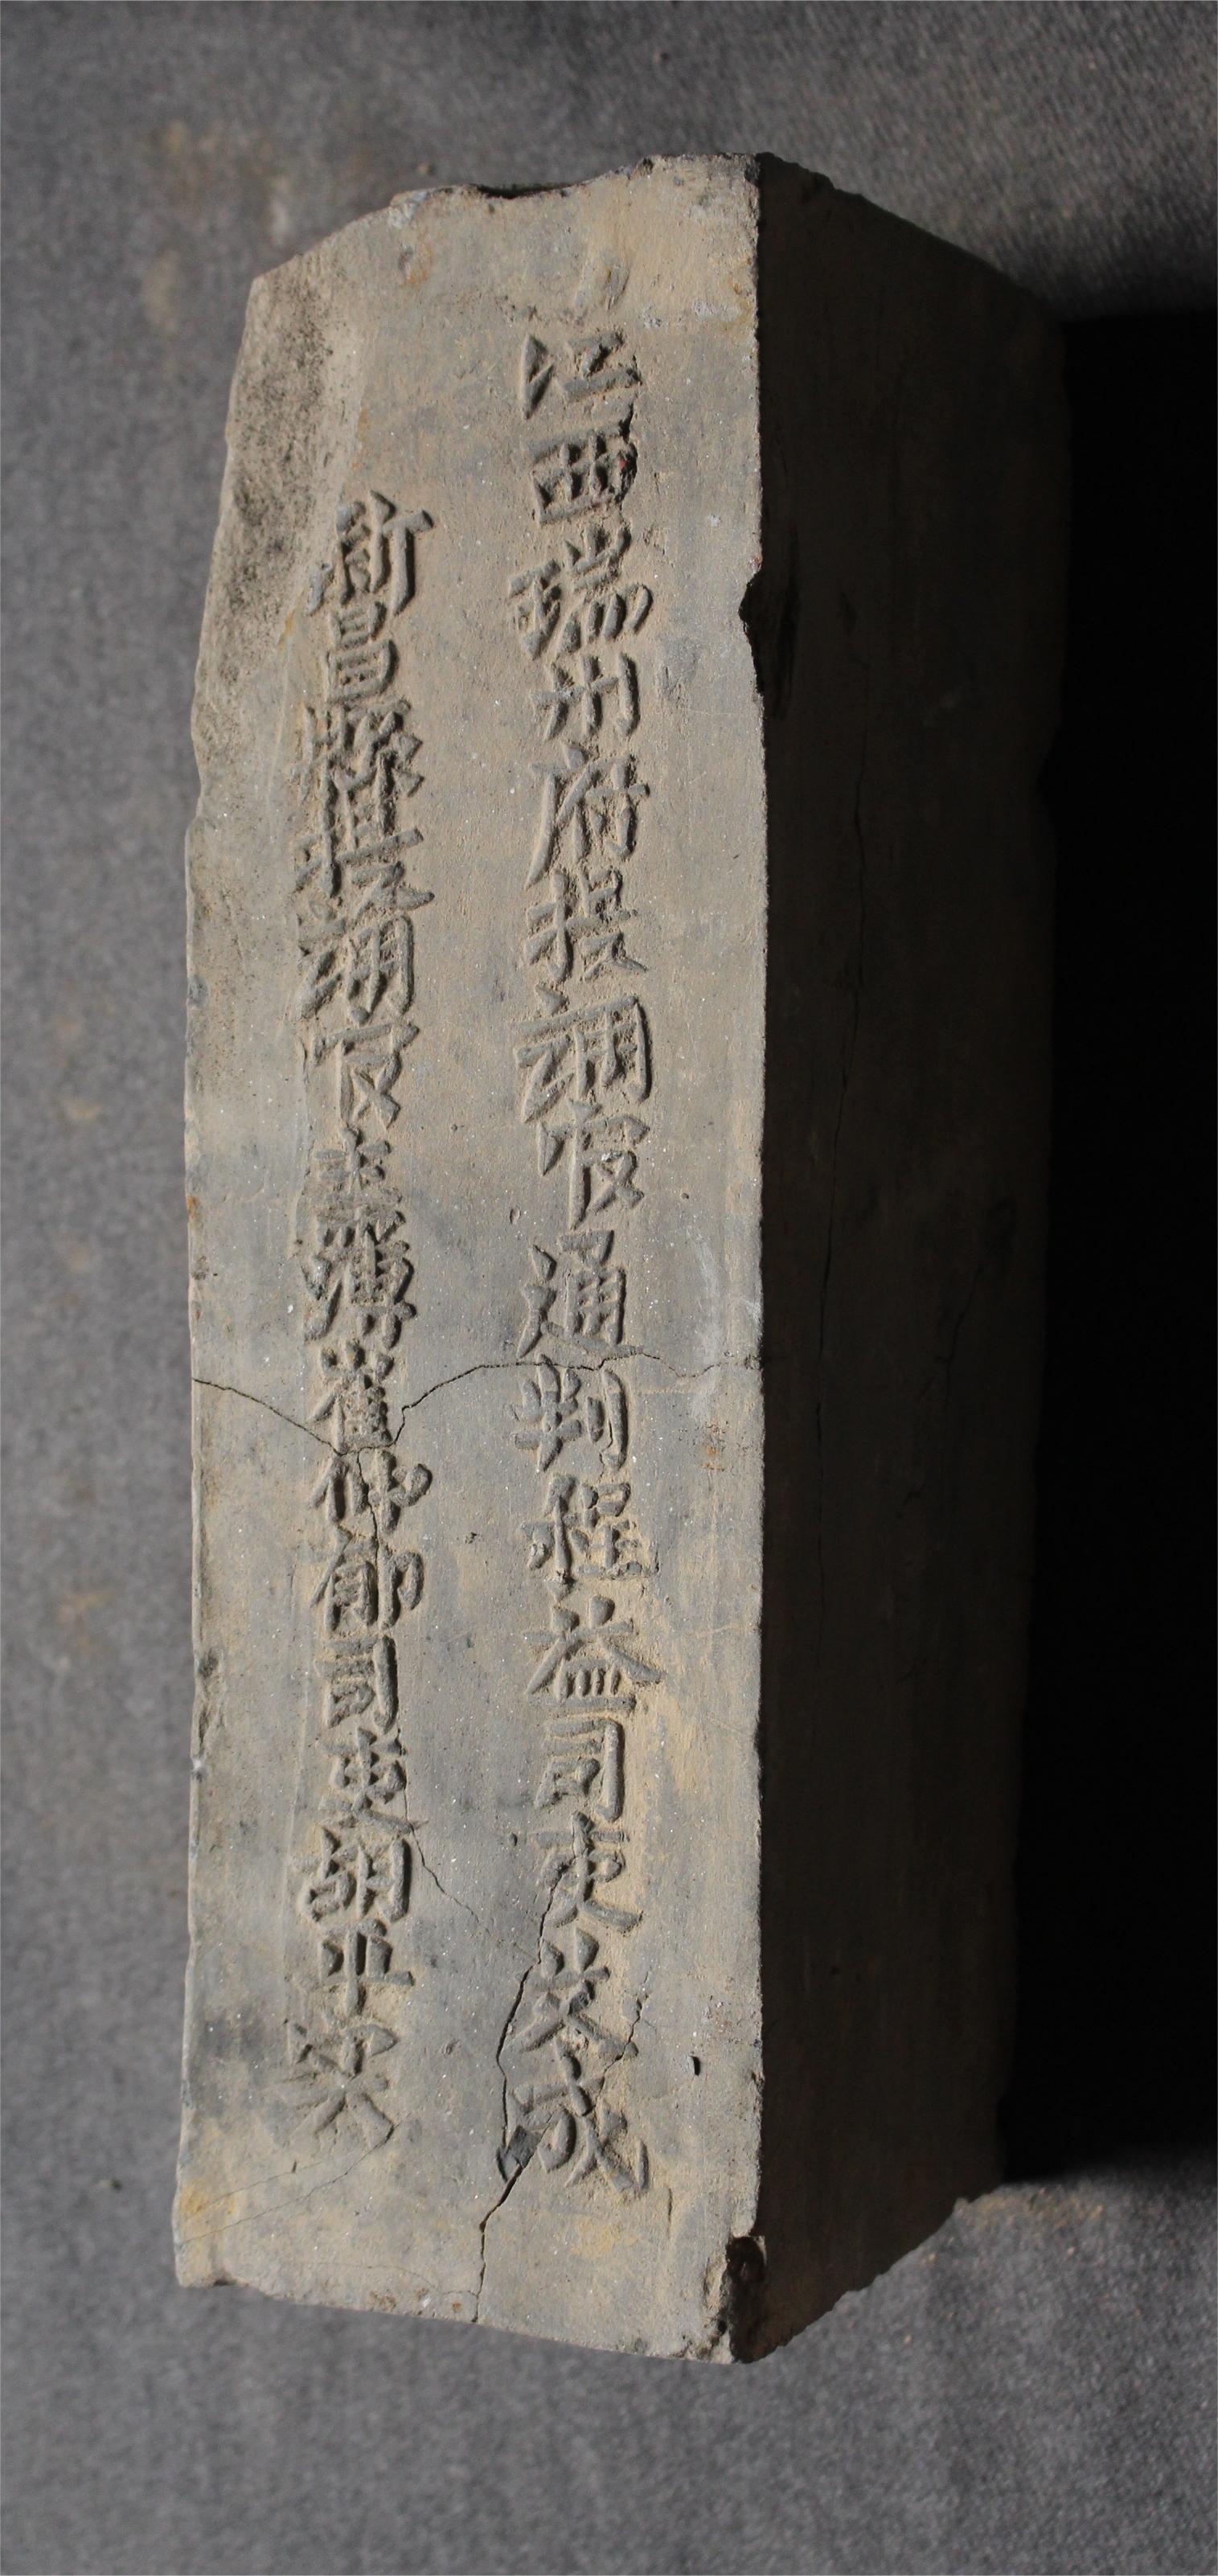 江西瑞州府提調官通判程益司吏艾成
新昌縣提調官主簿崔仲郁司吏胡平安